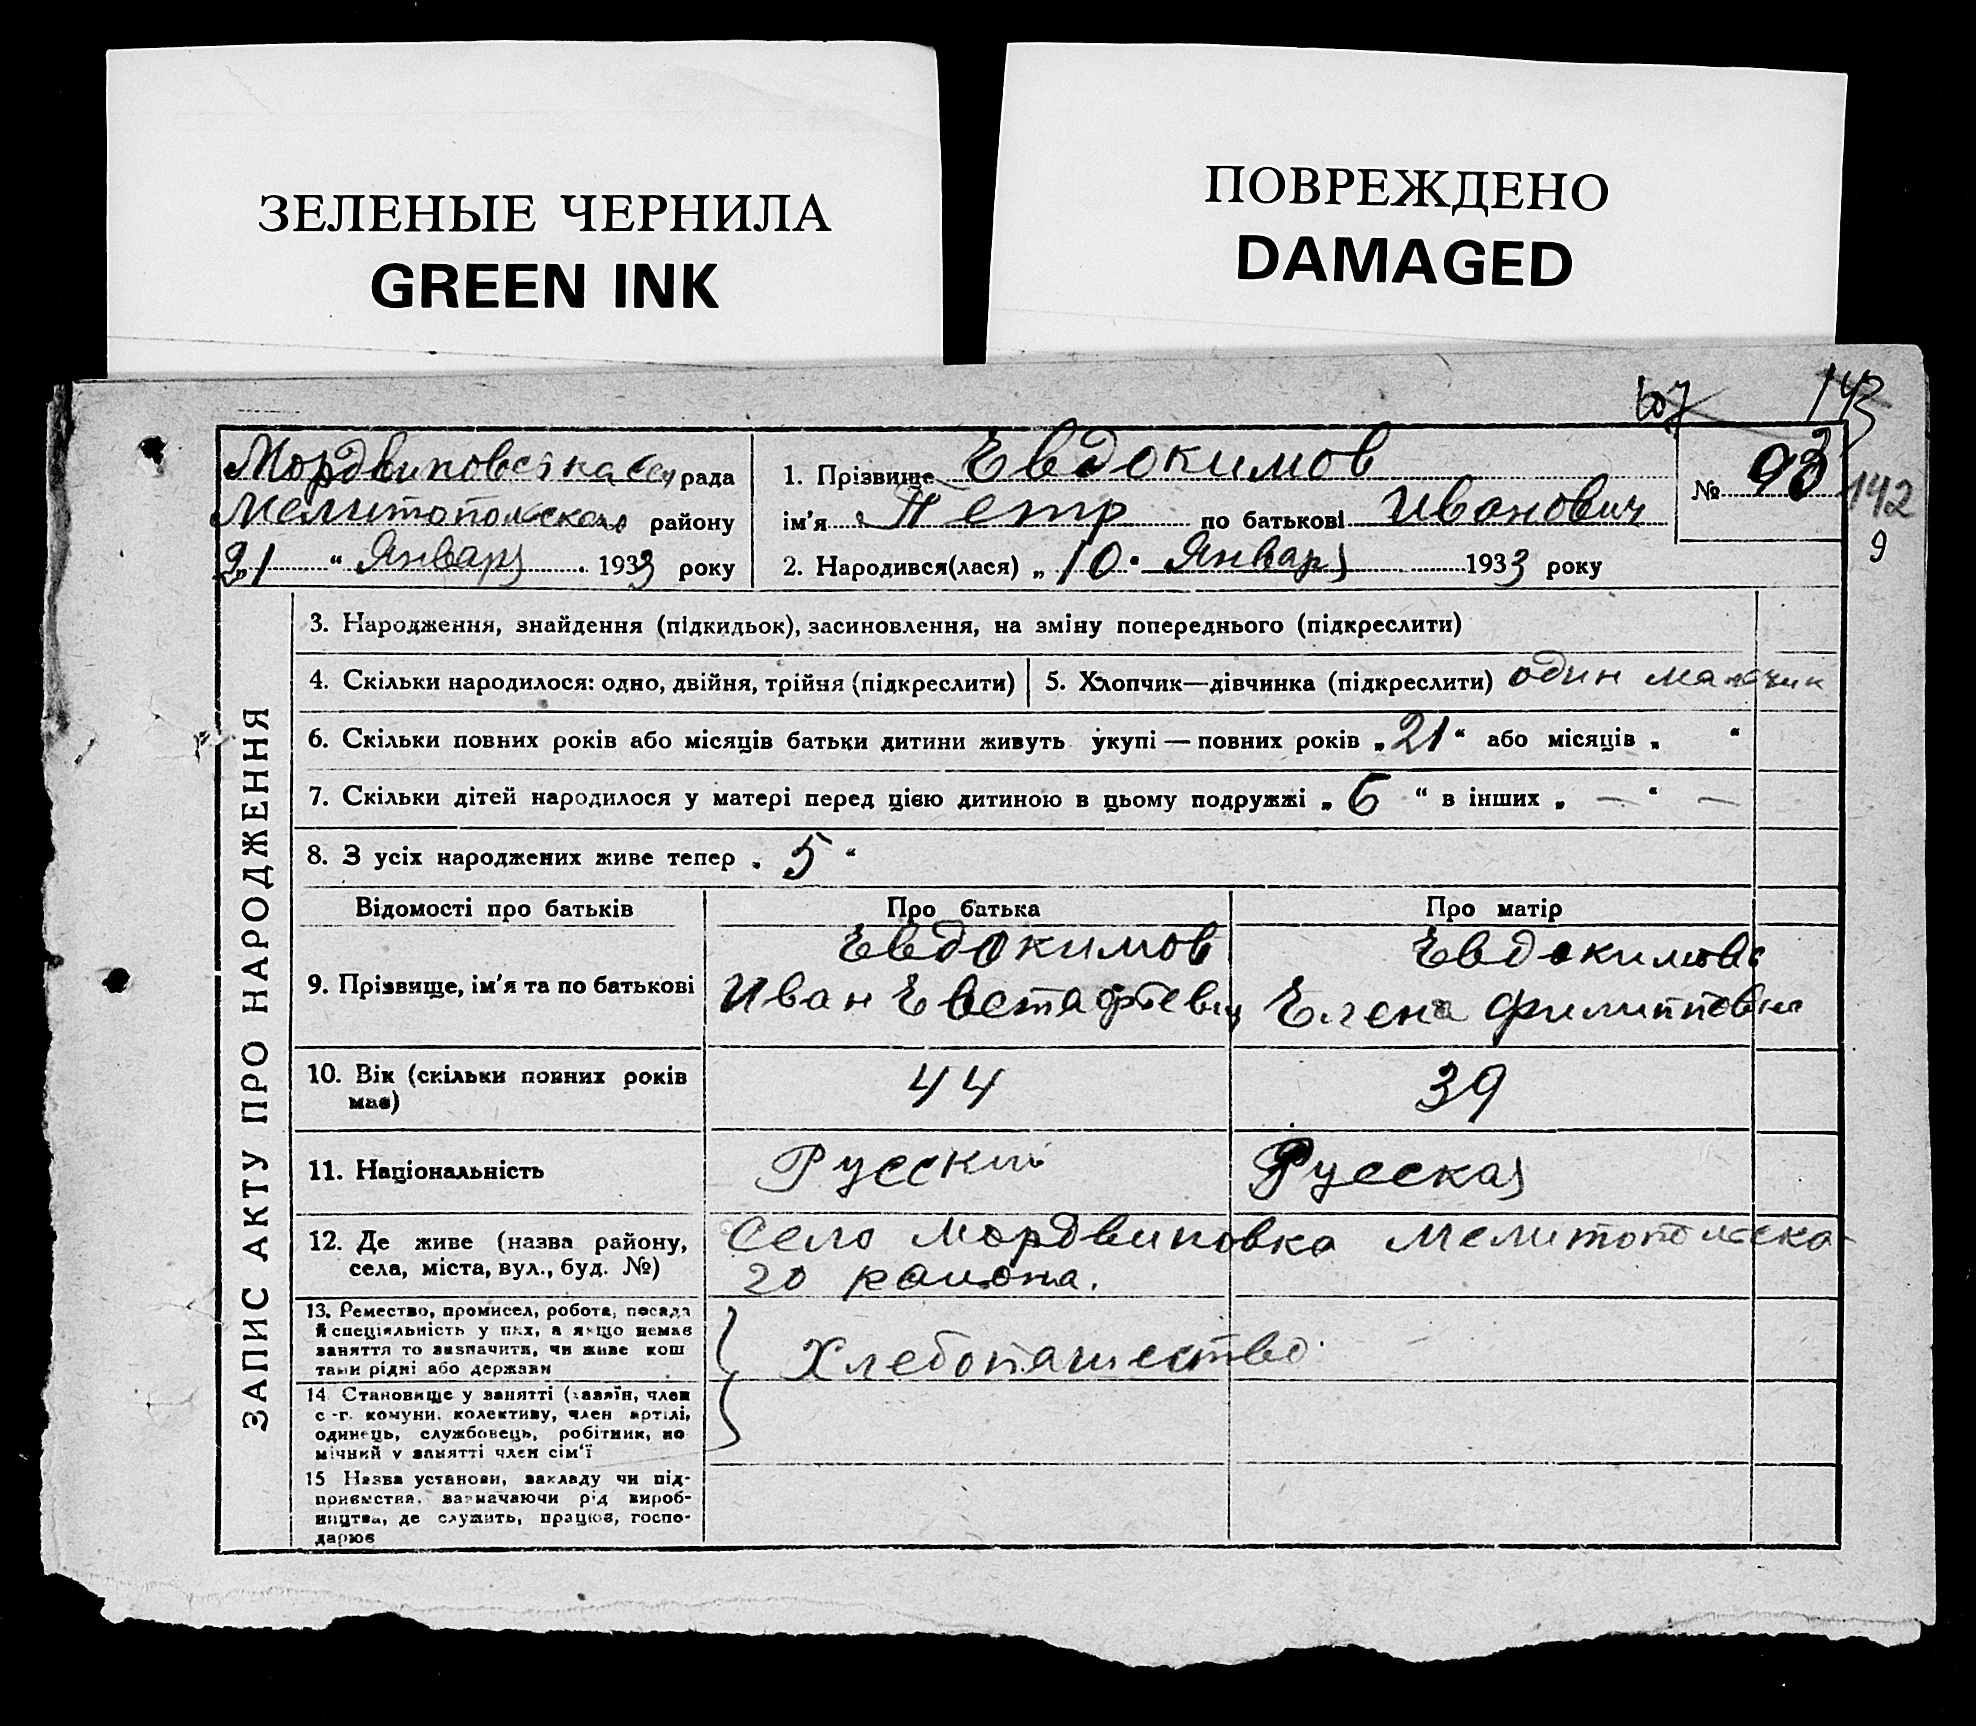 ЗЕЛЕНЫЕ ЧЕРНИЛА
GREEN INK
ПОВРЕЖДЕНО
DAMAGED
107
143
142
9
Мордвиновська Сел рада
Мелитопольского району
„21“ Января 1933 року
1. Прізвище Евдокимов
ім'я Петр по батькові Иванович
2. Народився(лася) „10“ Января 1933 року
№ 93
ЗАПИС АКТУ ПРО НАРОДЖЕННЯ
3. Народження, знайдення (підкидьок), засиновлення, на зміну попереднього (підкреслити)
4. Скільки народилося: одно, двійня, трійня (підкреслити)
5. Хлопчик—дівчинка (підкреслити) один мальчик
6. Скільки повних років або місяців батьки дитини живуть укупі — повних років „21“ або місяців „ “
7. Скільки дітей народилося у матері перед цією дитиною в цьому подружжі „6“ в інших „—“ —
8. З усіх народжених живе тепер „5“
Відомості про батьків
Про батька
Про матір
9. Прізвище, ім'я та по батькові
Евдокимов
Иван Евстафьевич
Евдокимова
Елена Филипповна
10. Вік (скільки повних років
має)
44
39
11. Національність
Русский
Русская
12. Де живе (назва району,
села, міста, вул., буд. №)
Село Мордвиновка Мелитопольско-
го района.
13. Ремество, промисел, робота, посада
й спеціяльність у них, а якщо немає
заняття то зазначити, чи живе кош
тами рідні або держави
Хлебопашество
14. Становище у занятті (хазяїн, член
с.-г. комуни, колективу, член артілі,
одинець, службовець, робітник, по
мічний у занятті член сім'ї
15 Назва установи, закладу чи під-
приємства, зазначаючи рід вироб-
ництва, де служить, працює, госпо-
дарює